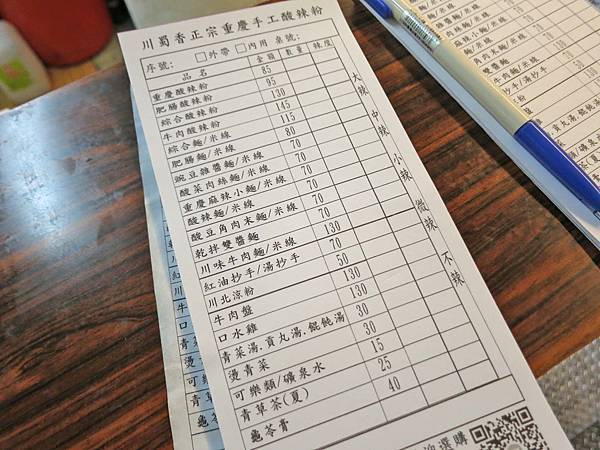 川蜀香正宗重慶手工酸辣粉
序號: □外帶 □內用 桌號:
品名 金額 數量 辣度
重慶酸辣粉 85
肥腸酸辣粉 95
綜合酸辣粉 130
牛肉酸辣粉 145
綜合麵/米線 115
肥腸麵/米線 80
豌豆雜醬麵/米線 70
酸菜肉絲麵/米線 70
重慶麻辣小麵/米線 70
酸辣麵/米線 70
酸豆角肉末麵/米線 70
乾拌雙醬麵 70
川味牛肉麵/米線 130
紅油抄手/湯抄手 70
川北涼粉 50
牛肉盤 130
口水雞 130
青菜湯,貢丸湯,餛飩湯 30
燙青菜 30
可樂類/礦泉水 15
青草茶(夏) 25
龜苓膏 40
大辣
中辣
小辣
微辣
不辣
迎選購